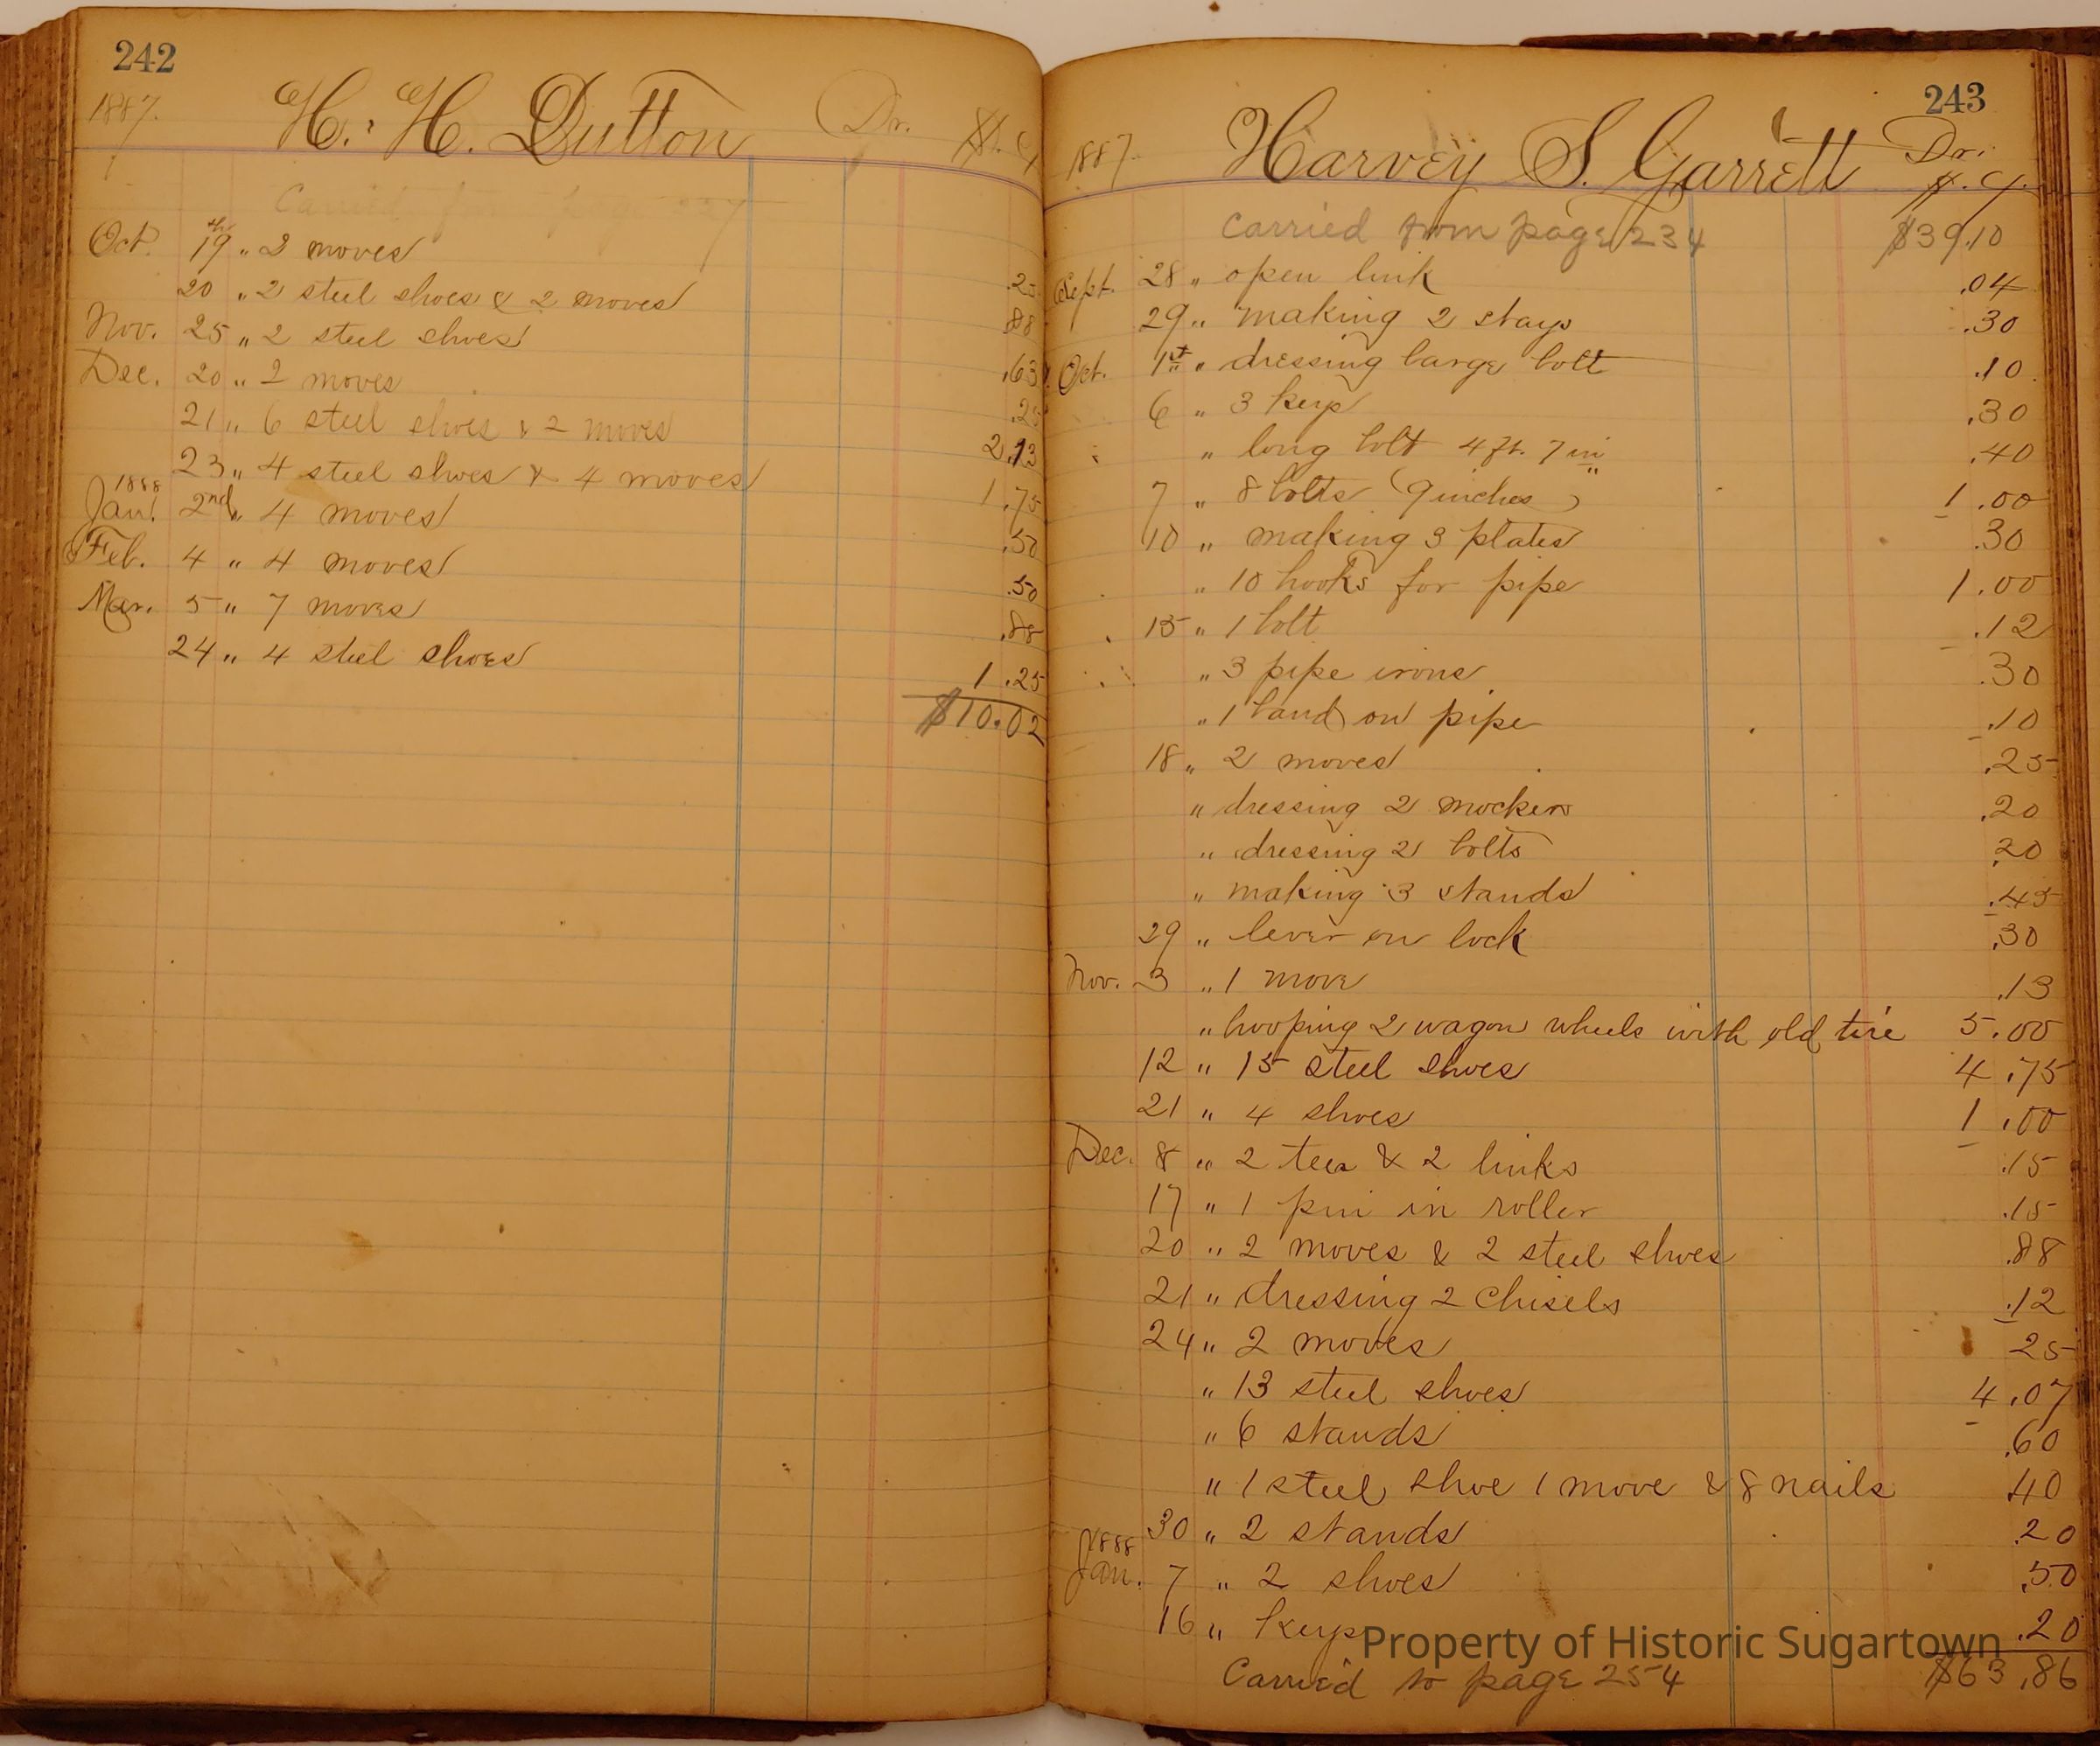 242
1887. H. H. Dutton Dr. $. c.
Carried from page 237
Oct. 19th " 2 moves .25
20 " 2 steel shoes & 2 moves .88
Nov. 25 " 2 steel shoes .63
Dec. 20 " 2 moves .25
21 " 6 steel shoes & 2 moves 2.13
23 " 4 steel shoes & 4 moves 1.75
1888
Jan. 2nd " 4 moves .50
Feb. 4 " 4 moves .50
Mar. 5 " 7 moves .88
24 " 4 steel shoes 1.25
$10.02
243
1887. Harvey S. Garrett Dr.
$. c.
Carried from page 234 $39.10
Sept. 28 " open link .04
29 " making 2 stays .30
Oct. 1st " dressing large bolt .10
6 " 3 keys .30
" long bolt 4 ft. 7 in .40
7 " 8 bolts (9 inches) 1.00
10 " making 3 plates .30
" 10 hooks for pipe 1.00
15 " 1 bolt .12
" 3 pipe irons .30
" 1 band on pipe .10
18 " 2 moves .25
" dressing 2 .20
" dressing 2 bolts .20
" making 3 stands .45
29 " lever on lock .30
Nov. 3 " 1 move .13
" hooping 2 wagon wheels with old tire 5.00
12 " 15 steel shoes 4.75
21 " 4 shoes 1.00
Dec. 8 " 2 tees & 2 links .15
17 " 1 pin in roller .15
20 " 2 moves & 2 steel shoes .88
21 " dressing 2 chisels .12
24 " 2 moves 25
" 13 steel shoes 4.07
" 6 stands .60
" 1 steel shoe 1 move & 8 nails .40
30 " 2 stands .20
1888
Jan. 7 " 2 shoes .50
16 " keys .20
Property of Historic Sugartown
Carried to page 254 $63.86